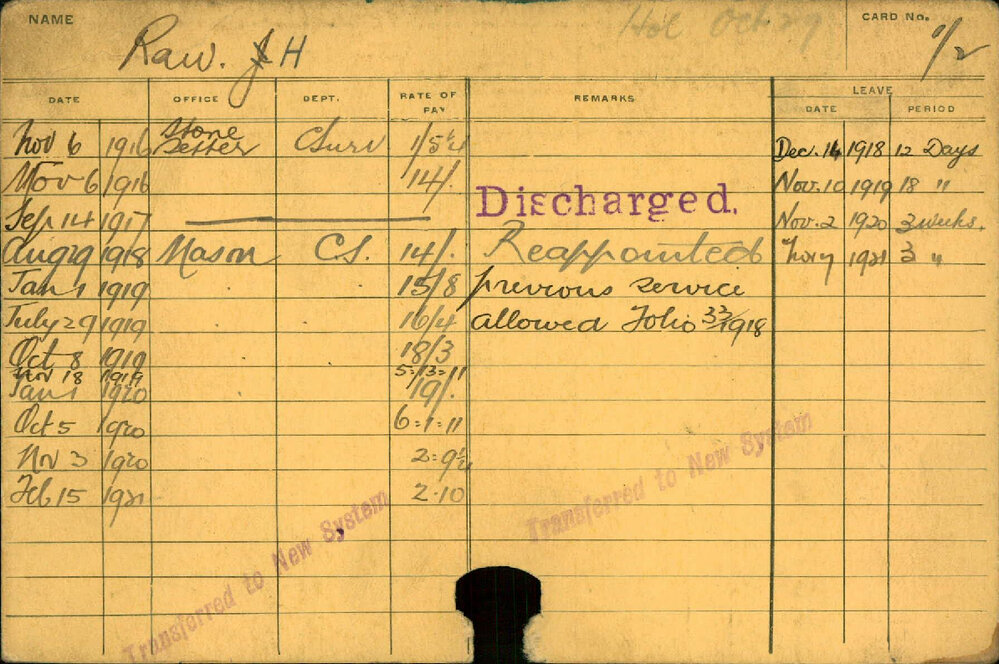 NAME
Raw. J H
Hol Oct 29
CARD No.
1/2
DATE OFFICE DEPT. RATE OF PAY REMARKS LEAVE
DATE PERIOD
Nov 6 1916 Stone Setter C Surv 1/5¼ Dec. 14 1918 12 Days
Nov 6 1916 14/. Nov. 10 1919 18 "
Sep 14 1917 Discharged. Nov. 2 1920 3 weeks.
Aug 29 1918 Mason C.S. 14/. Reappointed Nov 7 1921 3 "
Jan 1 1919 15/8 previous service
July 29 1919 16/4 allowed Folio 33/1918
Oct 8 1919 18/3
Nov 18 1919 5=13=11
Jan 1 1920 19/.
Oct 5 1920 6=1=11
Nov 3 1920
Feb 15 1921 2.10
Transferred to New System
Transferred to New System